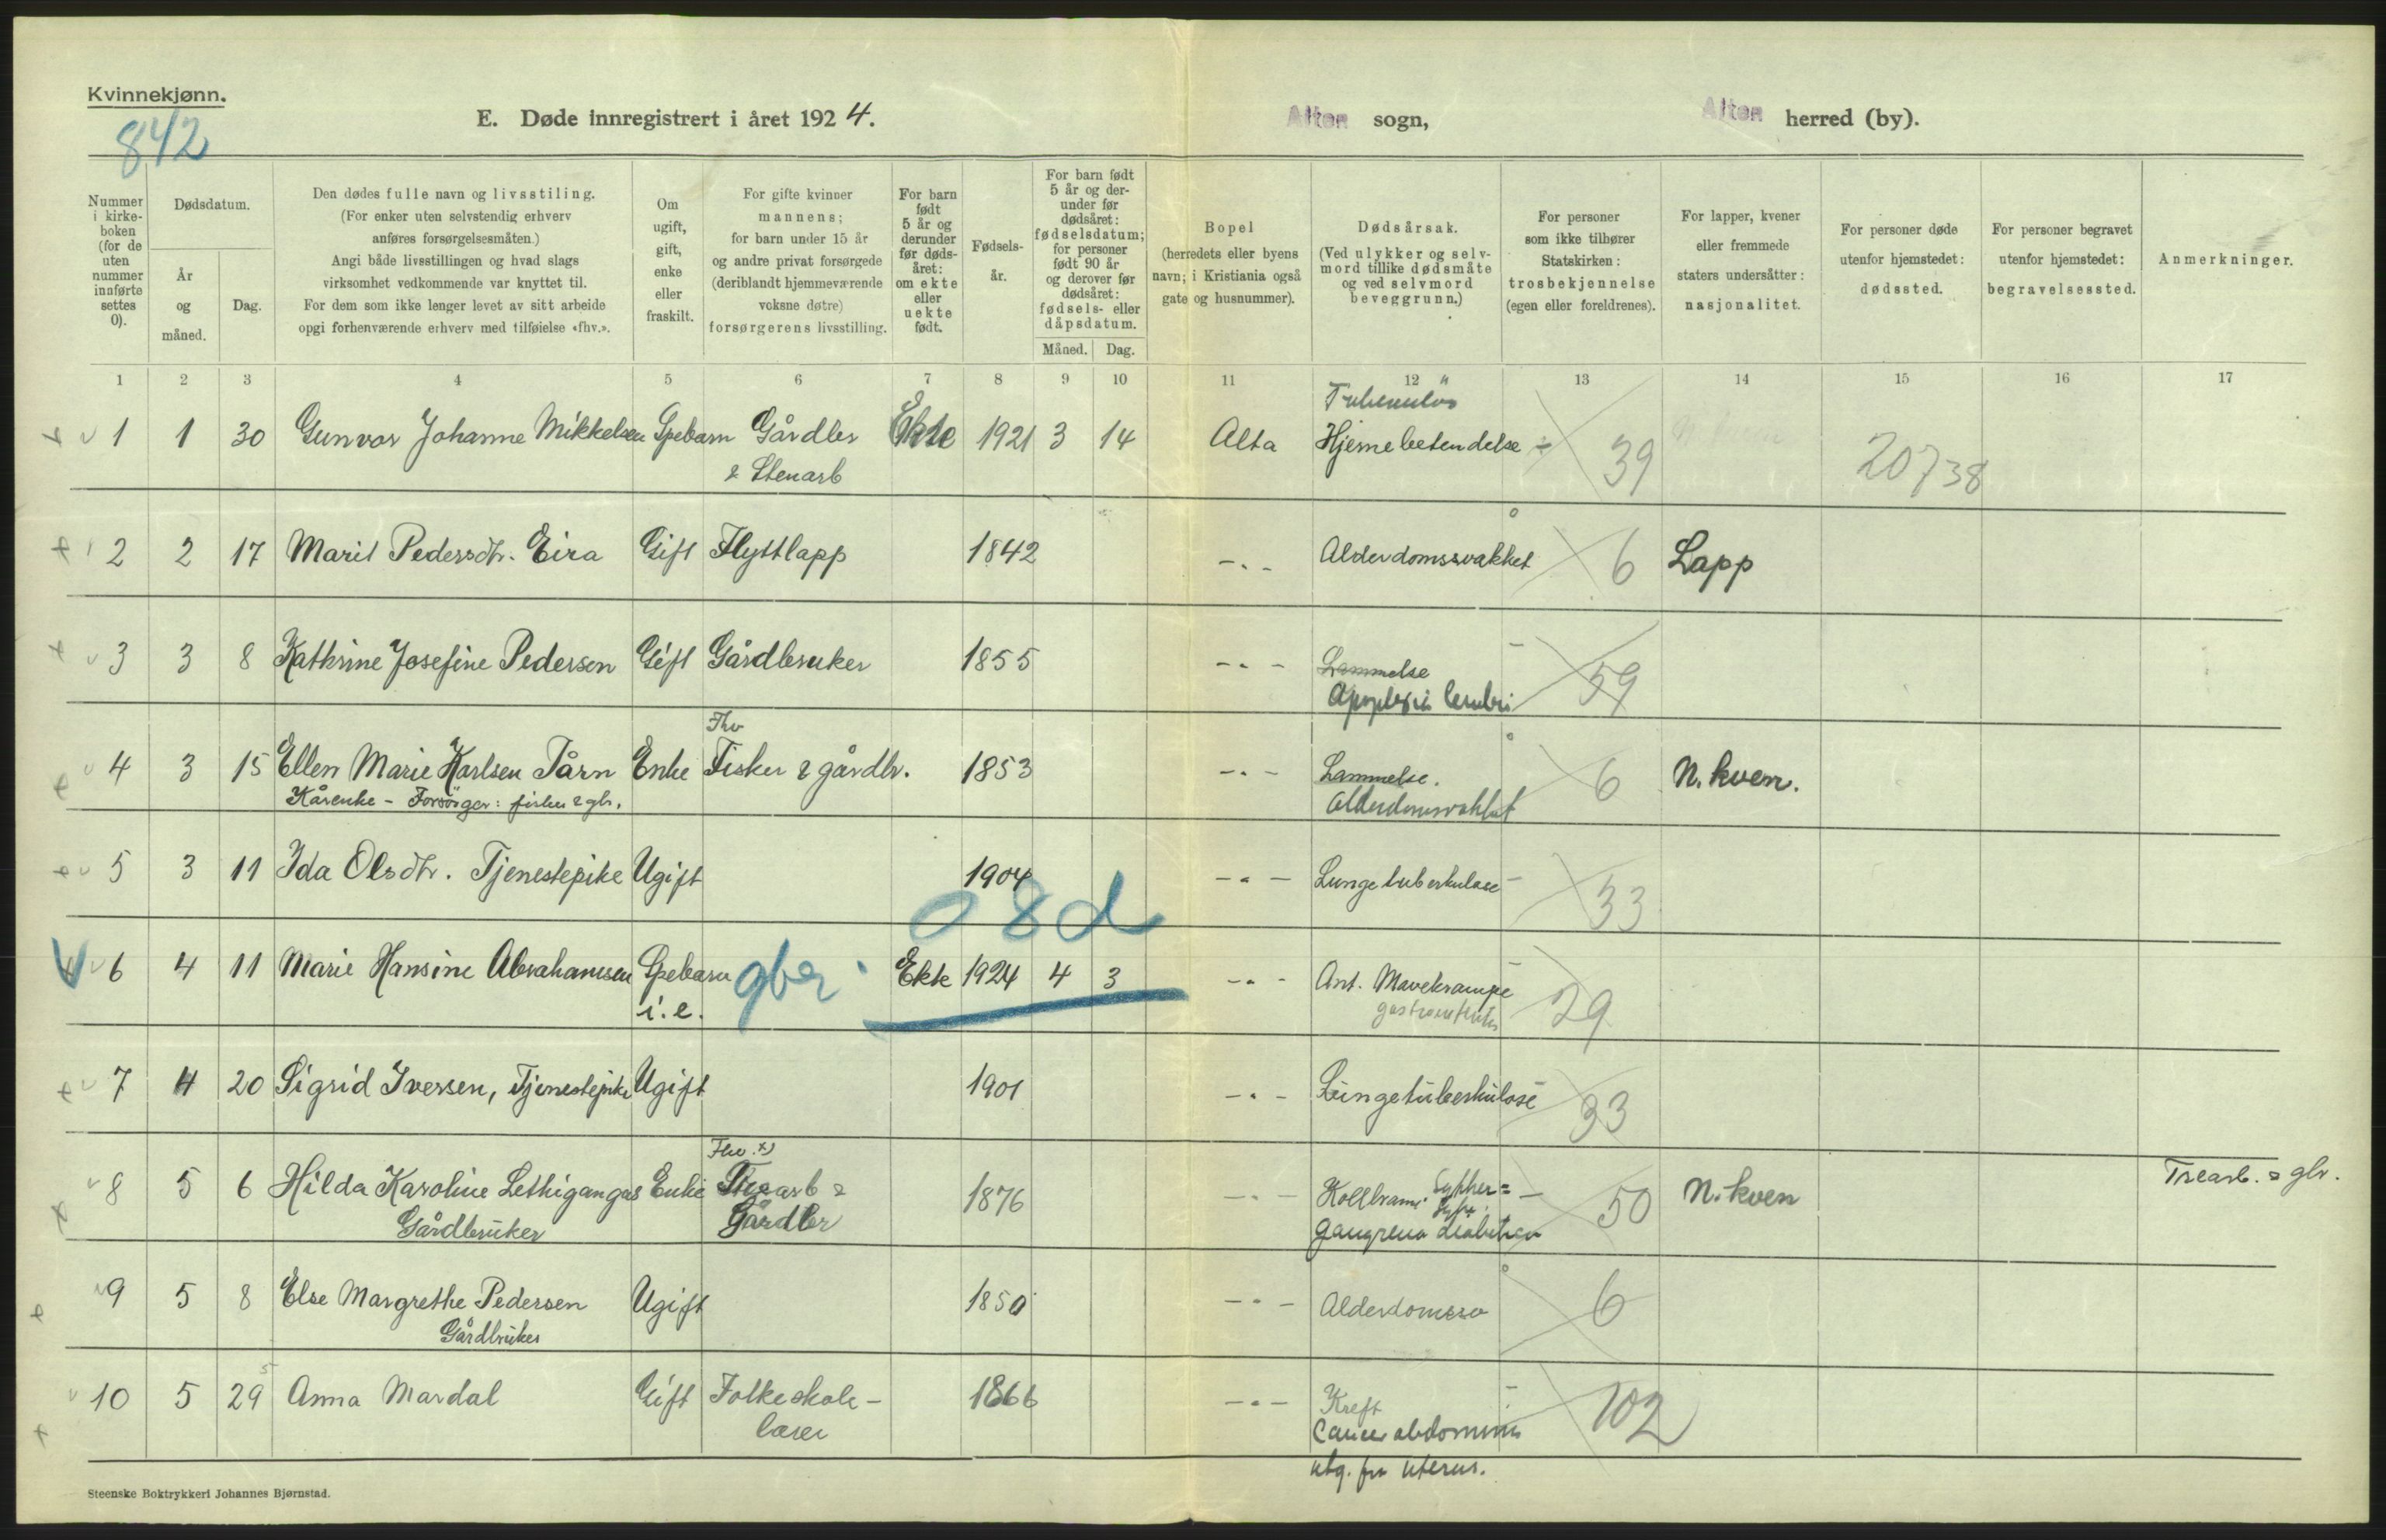 Kvinnekjønn.
842
E. Døde innregistrert i året 1924.
Alten sogn,
Alten herred (by).
Nummer i kirkeboken (for de uten nummer innførte settes 0).
Dødsdatum.
År og måned.
Dag.
Den dødes fulle navn og livsstiling.
(For enker uten selvstendig erhverv
anføres forsørgelsesmåten.)
Angi både livsstillingen og hvad slags
virksomhet vedkommende var knyttet til.
For dem som ikke lenger levet av sitt arbeide
opgi forhenværende erhverv med tilføielse «fhv.».
Om ugift, gift, enke eller fraskilt.
For gifte kvinner
mannens;
for barn under 15 år
og andre privat forsørgede
(deriblandt hjemmeværende
voksne døtre)
forsørgerens livsstilling.
For barn født 5 år og derunder før dødsåret: om ekte eller uekte født.
Fødselsår.
For barn født 5 år og derunder før dødsåret: fødselsdatum; for personer født 90 år og derover før dødsåret: fødsels- eller dåpsdatum.
Måned. Dag.
Bopel
(herredets eller byens
navn; i Kristiania også
gate og husnummer).
Dødsårsak.
(Ved ulykker og selvmord tillike dødsmåte og ved selvmord beveggrunn.)
For personer
som ikke tilhører
Statskirken:
trosbekjennelse
(egen eller foreldrenes).
For lapper, kvener
eller fremmede
staters undersåtter:
nasjonalitet.
For personer døde
utenfor hjemstedet:
dødssted.
For personer begravet
utenfor hjemstedet:
begravelsessted.
Anmerkninger.
1 2 3 4 5 6 7 8 9 10 11 12 13 14 15 16 17
Tuberkuløs
1 1 30 Gunvor Johanne Mikkelsen Spebarn Gårdbr Ekte 1921 3 14 Alta Hjernebetendelse 39 20738
& Stenarb
2 2 17 Marit Pedersdtr. Eira Gift Flyttlapp 1842 -"- Alderdomssvakhet 6 Lapp
3 3 8 Kathrine Josefine Pedersen Gift Gårdbruker 1855 -"- Lammelse 59
Apoplexia cerebri
Fhv
4 3 15 Ellen Marie Karlsen Tårn Enke Fisker & gårdbr. 1853 -"- Lammelse. 6 N. kven.
Kårenke - Forsørger: fisker & gbr. Alderdomsvakhet
5 3 11 Ida Olsdtr. Tjenestepike Ugift 1904 -"- Lungetuberkulose 33
08d
6 4 11 Marie Hansine Abrahamsen Spebarn gbr Ekte 1924 4 3 -"- Ant. Mavekrampe 29
i. e.
7 4 20 Sigrid Iversen, Tjenestepike Ugift 1901 -"- Lungetuberkulose 33
Fhv. x)
8 5 6 Hilda Karoline Lethigangas Enke Trearb & 1876 -"- Koldbrann. 50 N. kven Trearb. & gbr.
Gårdbruker Gårdbr Gangrena diabetica
9 5 8 Else Margrethe Pedersen Ugift 1850 -"- Alderdomssv 6
Gårdbruker
10 5 29 Anna Mardal Gift Folkeskole- 1866 -"- Kreft 102
lærer Cancer abdominis
utg. fra uterus.
Steenske Boktrykkeri Johannes Bjørnstad.